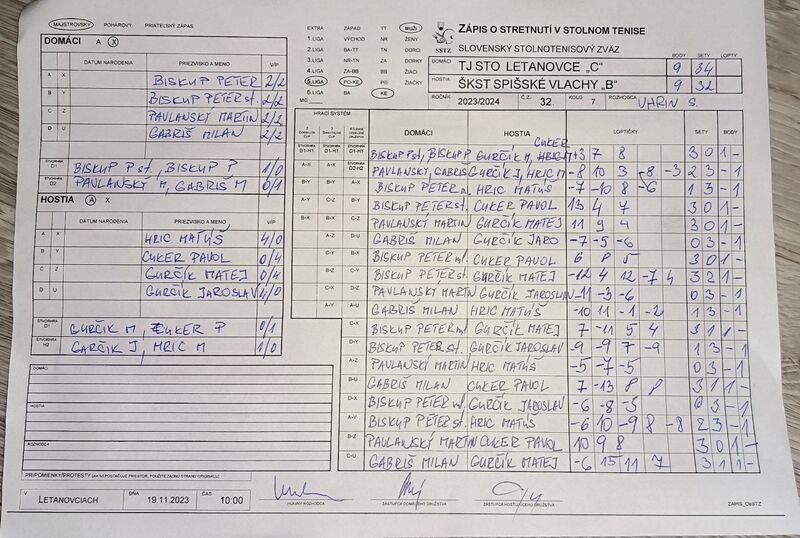 MAJSTROVSKÝ POHÁROVÝ PRIATEĽSKÝ ZÁPAS
DOMÁCI A X
DÁTUM NARODENIA PRIEZVISKO A MENO V/P
A X BISKUP PETER 2/2
B Y BISKUP PETER st. 2/2
C Z PAVLANSKÝ MARTIN 2/2
D U GABRIŠ MILAN 2/2
ŠTVORHRA D1 BISKUP P st., BISKUP P 1/0
ŠTVORHRA D2 PAVLANSKÝ M, GABRIŠ M 0/1
HOSTIA A X
DÁTUM NARODENIA PRIEZVISKO A MENO V/P
A X HRIC MATÚŠ 4/0
B Y CUKER PAVOL 0/4
C Z GURČÍK MATEJ 0/4
D U GURČÍK JAROSLAV 4/0
GURČÍK M, CUKER P 0/1
ŠTVORHRA H2 GARČÍK J, HRIC M 1/0
DOMÁCI
HOSTIA
ROZHODCA
PRIPOMIENKY/PROTESTY (AK NEPOSTAČUJE PRIESTOR, POUŽITE ZADNÚ STRANU ORIGINÁLU)
V LETANOVCIACH DŇA 19.11.2023 ČAS 10:00
EXTRA ZÁPAD TT MUŽI
1.LIGA VÝCHOD NR ŽENY
2.LIGA BA-TT TN DORCI
3.LIGA NR-TN ZA DORKY
4.LIGA ZA-BB BB ŽIACI
5.LIGA PO-KE PO ŽIAČKY
6.LIGA BA KE
MO
SSTZ
ZÁPIS O STRETNUTÍ V STOLNOM TENISE
SLOVENSKÝ STOLNOTENISOVÝ ZVÄZ
BODY SETY LOPTY
DOMÁCI TJ STO LETANOVCE „C“ 9 34
HOSTIA ŠKST SPIŠSKÉ VLACHY „B“ 9 32
ROČNÍK 2023/2024 Č.Z. 32. KOLO 7 ROZHODCA UHRIN S.
HRACÍ SYSTÉM
DOMÁCI HOSTIA LOPTIČKY SETY BODY
CUKER
D1-H1 D1-H1 BISKUP P st, BISKUP P GURČÍK M, 3 7 8 3 0 1 -
A-X A-X D2-H2 PAVLANSKÝ, GABRIŠ GURČÍK J, HRIC M -8 10 3 -8 -3 2 3 - 1
B-Y B-Y A-X BISKUP PETER ml. HRIC MATÚŠ -7 -10 8 -6 1 3 - 1
A-Y C-Z B-Y BISKUP PETER st. CUKER PAVOL 13 4 7 3 0 1 -
B-X B-X C-Z PAVLANSKÝ MARTIN GURČÍK MATEJ 11 9 4 3 0 1 -
A-Z D-U GABRIŠ MILAN GURČÍK JARO -7 -5 -6 0 3 - 1
C-Y B-X BISKUP PETER ml. CUKER PAVOL 6 8 5 3 0 1 -
B-Z C-Y BISKUP PETER st. GURČÍK MATEJ -12 4 12 -7 4 3 2 1 -
C-X D-Z PAVLANSKÝ MARTIN GURČÍK JAROSLAV -11 -3 -6 0 3 - 1
A-Y A-U GABRIŠ MILAN HRIC MATÚŠ -10 11 -1 -2 1 3 - 1
C-X BISKUP PETER ml. GURČÍK MATEJ 7 -11 5 4 3 1 1 -
D-Y BISKUP PETER st. GURČÍK JAROSLAV -9 -9 7 -9 1 3 - 1
A-Z PAVLANSKÝ MARTIN HRIC MATÚŠ -5 -7 -5 0 3 - 1
B-U GABRIŠ MILAN CUKER PAVOL 7 -13 8 8 3 1 1 -
D-X BISKUP PETER ml. GURČÍK JAROSLAV -6 -8 -3 0 3 - 1
A-Y BISKUP PETER st. HRIC MATÚŠ -6 10 -9 8 -8 2 3 - 1
B-Z PAVLANSKÝ MARTIN CUKER PAVOL 10 9 8 3 0 1 -
C-U GABRIŠ MILAN GURČÍK MATEJ -6 15 11 7 3 1 1 -
HLAVNÝ ROZHODCA ZÁSTUPCA DOMÁCEHO DRUŽSTVA ZÁSTUPCA HOSŤUJÚCEHO DRUŽSTVA
ZAPIS_OsSTZ